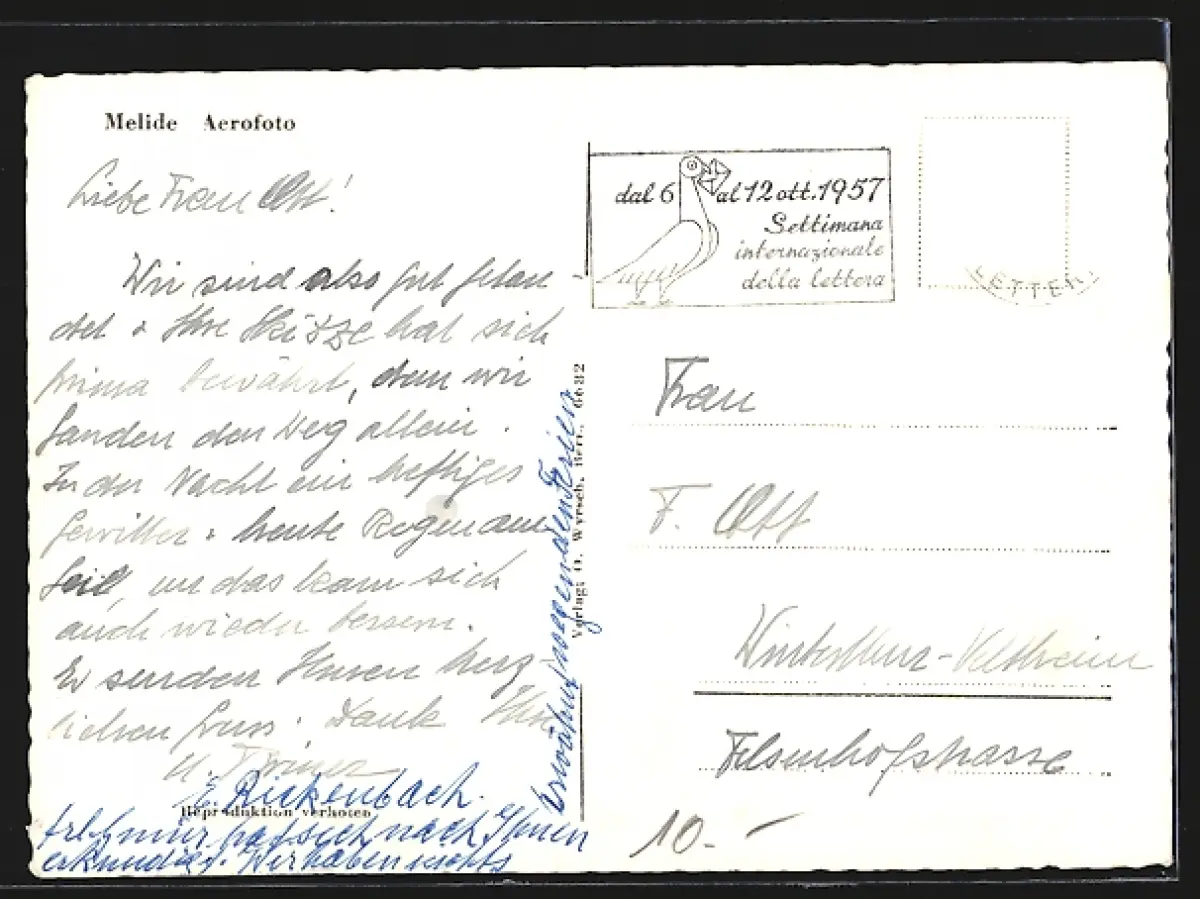 Melide Aerofoto
Liebe Frau Ott!
Wir sind also gut gelan-
det & Ihre Skizze hat sich
prima bewährt, denn wir
fanden den Weg allein.
In der Nacht ein heftiges
Gewitter & heute Regen am
, das kann sich
auch wieder bessern.
Es senden Ihnen herz-
lichen Gruss & Dank Ihre
E. Rickenbach.
Reproduktion verhoten
Frl. hat sich nach Ihnen
erkundigt. Wir haben nichts
erwähnt wegen den Ferien
Verlag: O. Wyrsch, Bern. 6632
dal 6 al 12 ott. 1957
Settimana
internazionale
della lettera
LETTER
Frau
F. Ott
Winterthur-Veltheim
Felsenhofstrasse
10.-